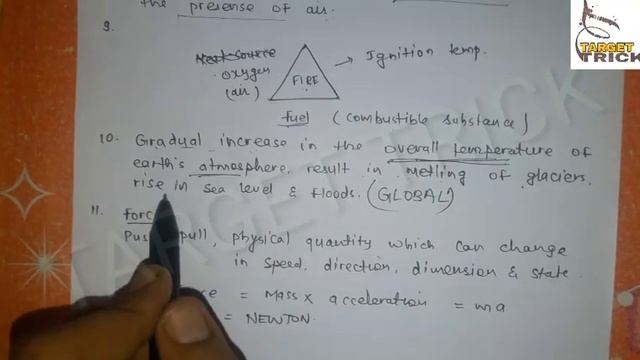 the presense of air.
9.
Heat source
oxygen
(air)
FIRE
→ Ignition temp.
fuel (combustible substance)
10. Gradual increase in the overall temperature of
earth's atmosphere, result in melting of glaciers,
rise in sea level & floods. (GLOBAL)
11. Forc
Pus pull, physical quantity which can change
in speed, direction, dimension & state
ce = Mass x acceleration = ma
= NEWTON.
TARGET TRICK
TARGET
TRICK